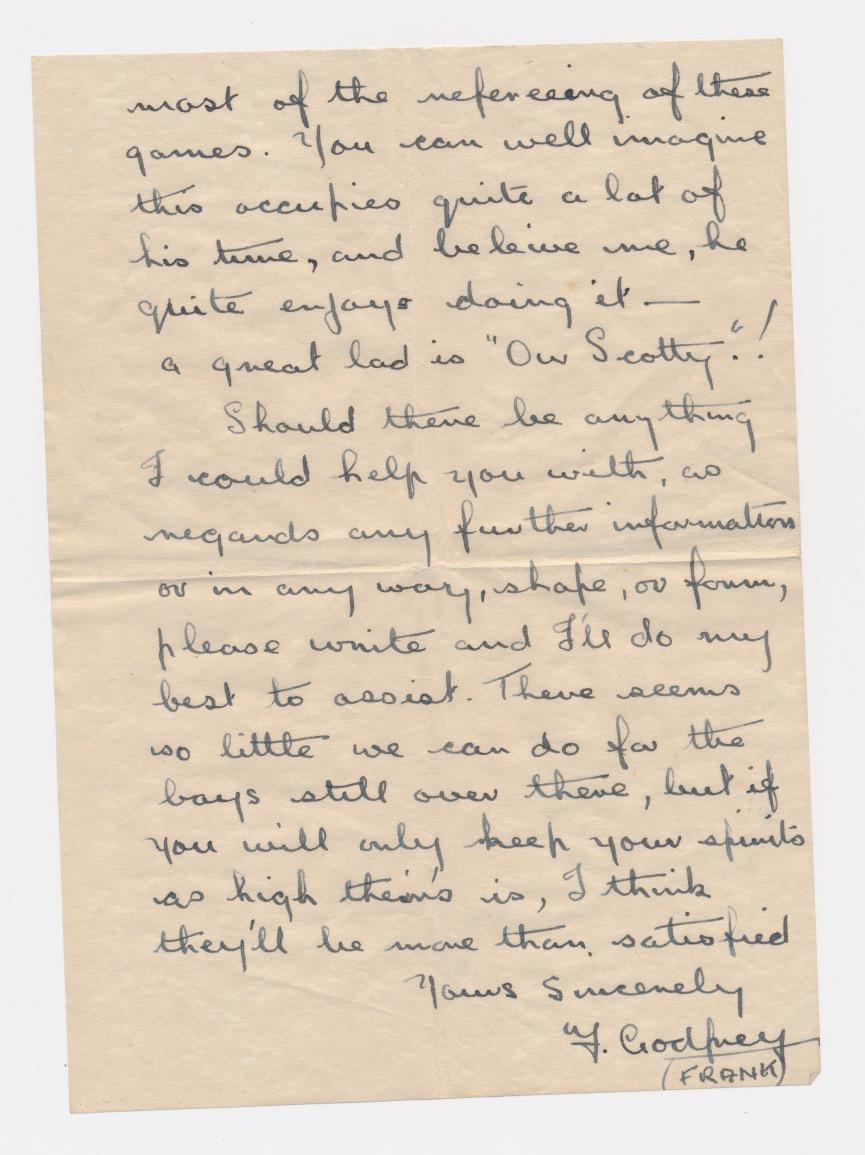 most of the refereeing of these
games. You can well imagine
this occupies quite a lot of
his time, and beleive me, he
quite enjoys doing it —
a great lad is "Our Scotty".!
Should there be anything
I could help you with, as
regards any further information
or in any way, shape, or form,
please write and I'll do my
best to assist. There seems
so little we can do for the
boys still over there, but if
you will only keep your spirits
as high their's is, I think
they'll be more than satisfied
Yours Sincerely
"F. Godfrey
(FRANK)